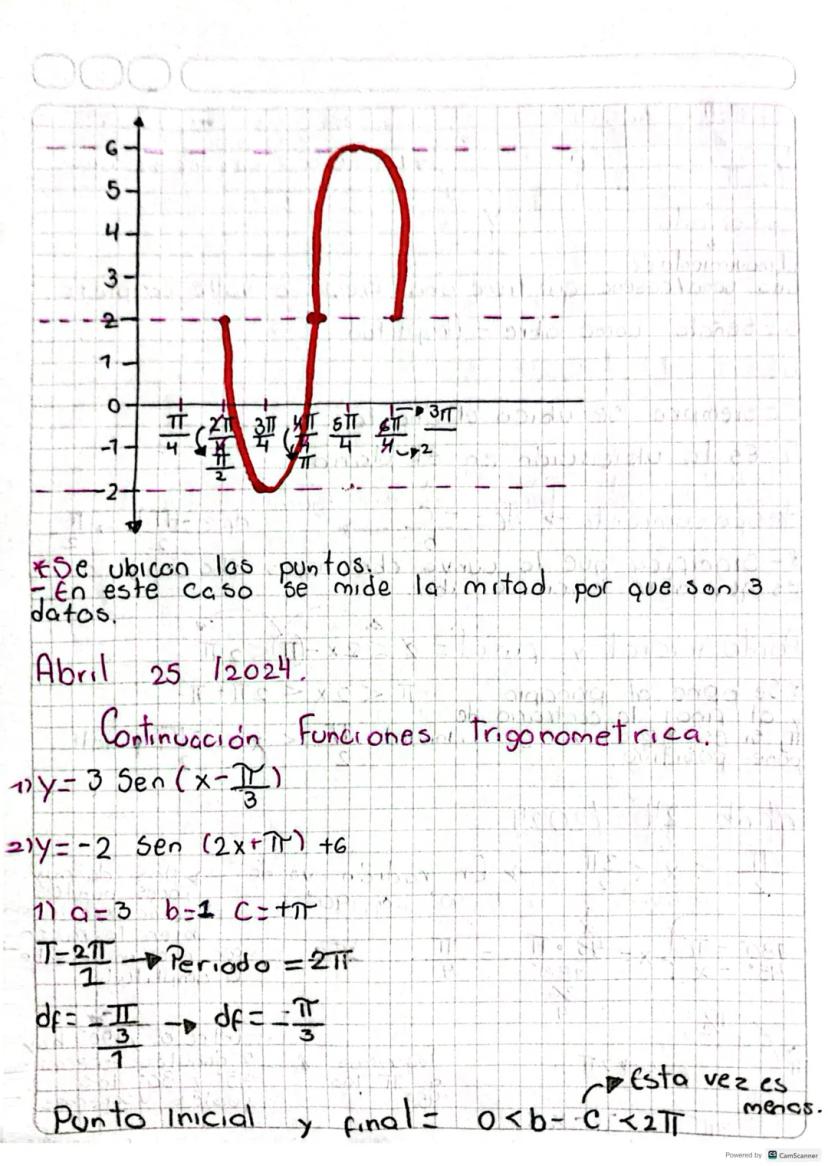 6
5
4
3
2
1
0
-1
-2
π/4 2π/4 π/2 3π/4 4π/4 π 5π/4 6π/4 → 3π/2
*Se ubican los puntos.
- En este caso se mide la mitad por que son 3
datos.
Abril 25 /2024.
Continuación Funciones trigonometrica.
1) y= 3 Sen (x-π/3)
2) y= -2 Sen (2x+π) +6
1) a=3 b=1 C=+π
T=2π/1 → Periodo = 2π
df= - -π/3/1 → df= -π/3
Esta vez es
menos.
Punto Inicial y final= 0<b- C <2π
Powered by CS CamScanner